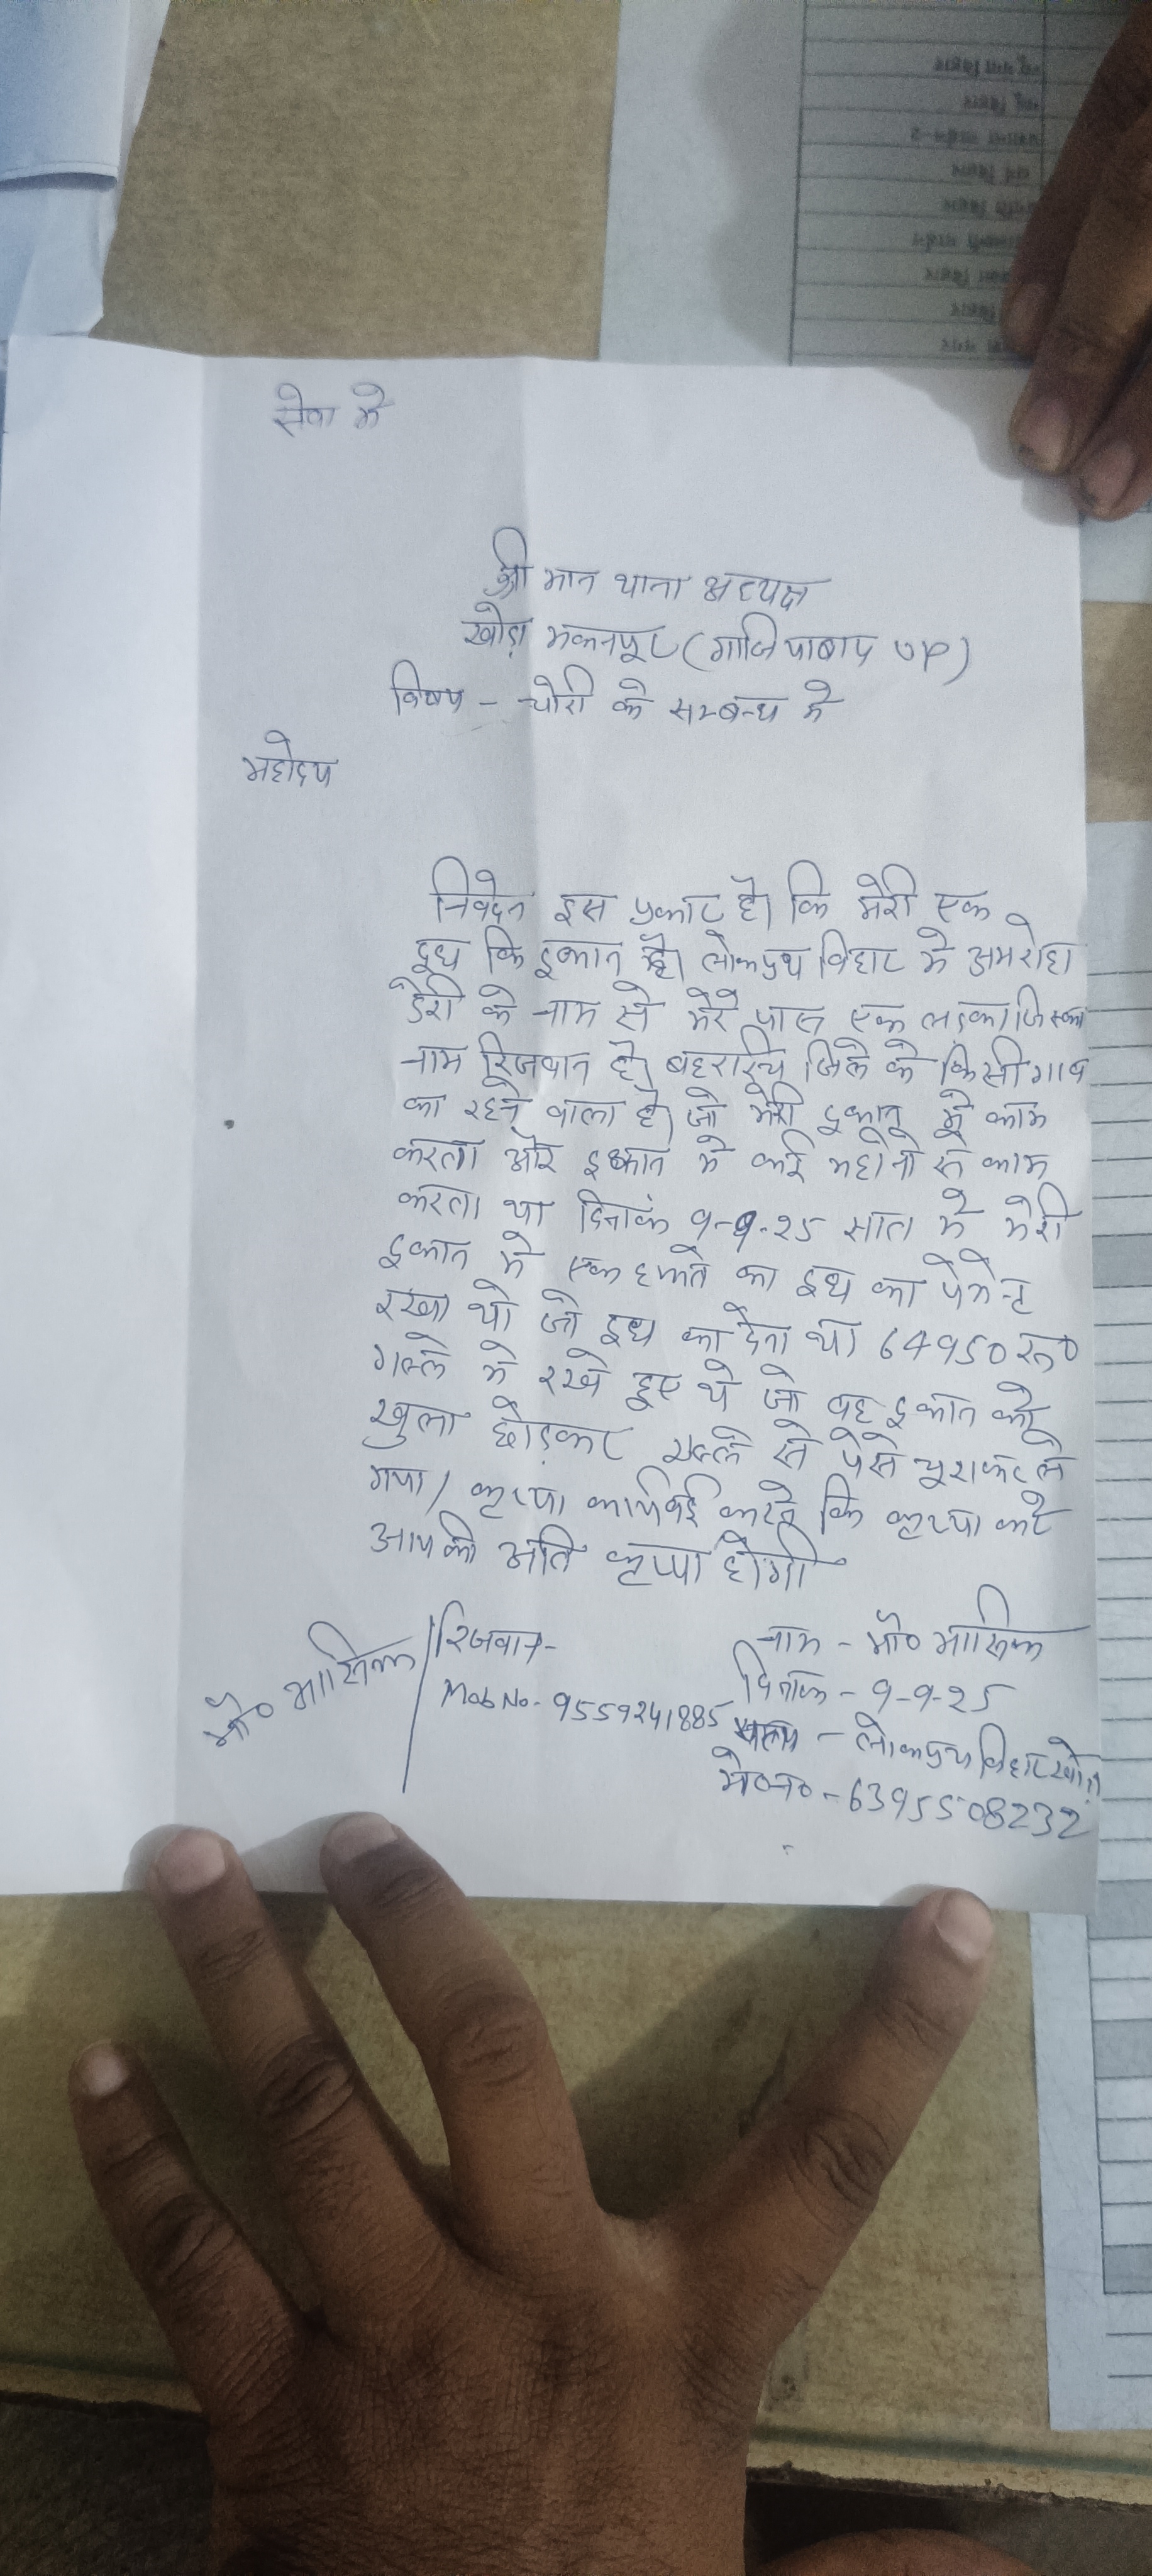 सेवा मे
श्री मान थाना अध्यक्ष
खोड़ा मकनपुर (गाजियाबाद UP)
विषय - चोरी के सम्बन्ध मे
महोदय
निवेदन इस प्रकार है। कि मेरी एक
दूध कि दुकान है। लोकप्रिय विहार मे अमरोहा
डेरी के नाम से मेरे पास एक लड़का जिस्का
नाम रिजवान है। बहराईच जिले के किसी गाव
का रहने वाला है। जो मेरी दुकान मे काम
करता और दुकान मे कई महीनो से काम
करता था दिनांक 9-9-25 सात मे मेरी
दुकान मे एक हफ्ते का दुध का पेमेन्ट
रखा थो जो दुध का देना था 64950 रू०
गल्ले मे रखे हुए थे जो वह दुकान को
खुला छोड़कर गल्ले से पेसे चुराकर ले
गया। कृप्या कार्यवाई करने कि कृप्या करे
आपकी अति कृप्या होगी
मौ० आसिफ
रिजवान-
Mob No- 9559241885
नाम - मौ० आसिफ
दिनांक - 9-9-25
- लोकप्रिय विहार खोड़ा
मो०न० - 6395508232
लाईन-2
विहार